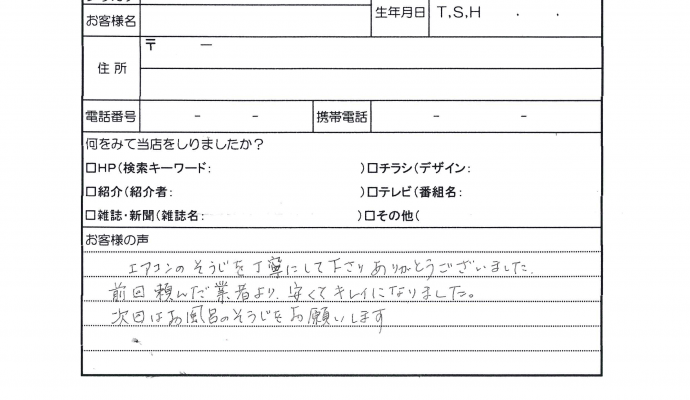 お客様名
生年月日 T,S,H ・ ・
住所 〒 ー
電話番号 － － 携帯電話 － －
何をみて当店をしりましたか？
□HP(検索キーワード: )□チラシ(デザイン:
□紹介(紹介者: )□テレビ(番組名:
□雑誌・新聞(雑誌名: )□その他(
お客様の声
エアコンのそうじを丁寧にして下さりありがとうございました.
前回頼んだ業者より、安くてキレイになりました。
次回はお風呂のそうじをお願いします